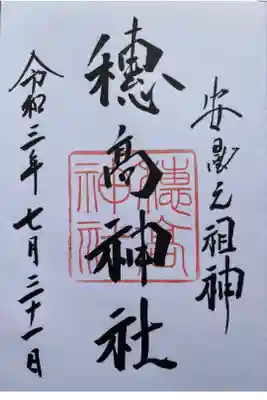 安曇元祖神
穂髙神社
令和三年七月三十一日
穂髙
神社